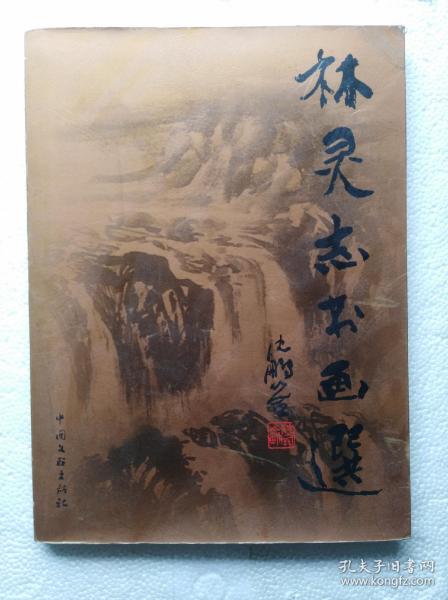 林灵志书画選
沈鹏签
中国文联出版社
孔夫子旧书网
www.kongfz.com